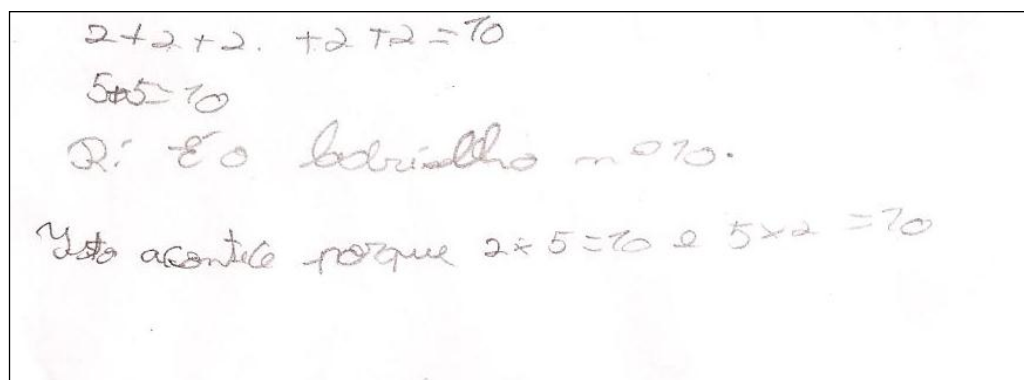 2+2+2. +2+2=10
5+5=10
R: É o ladrilho nº 10.
Isto acontece porque 2×5=10 e 5×2=10